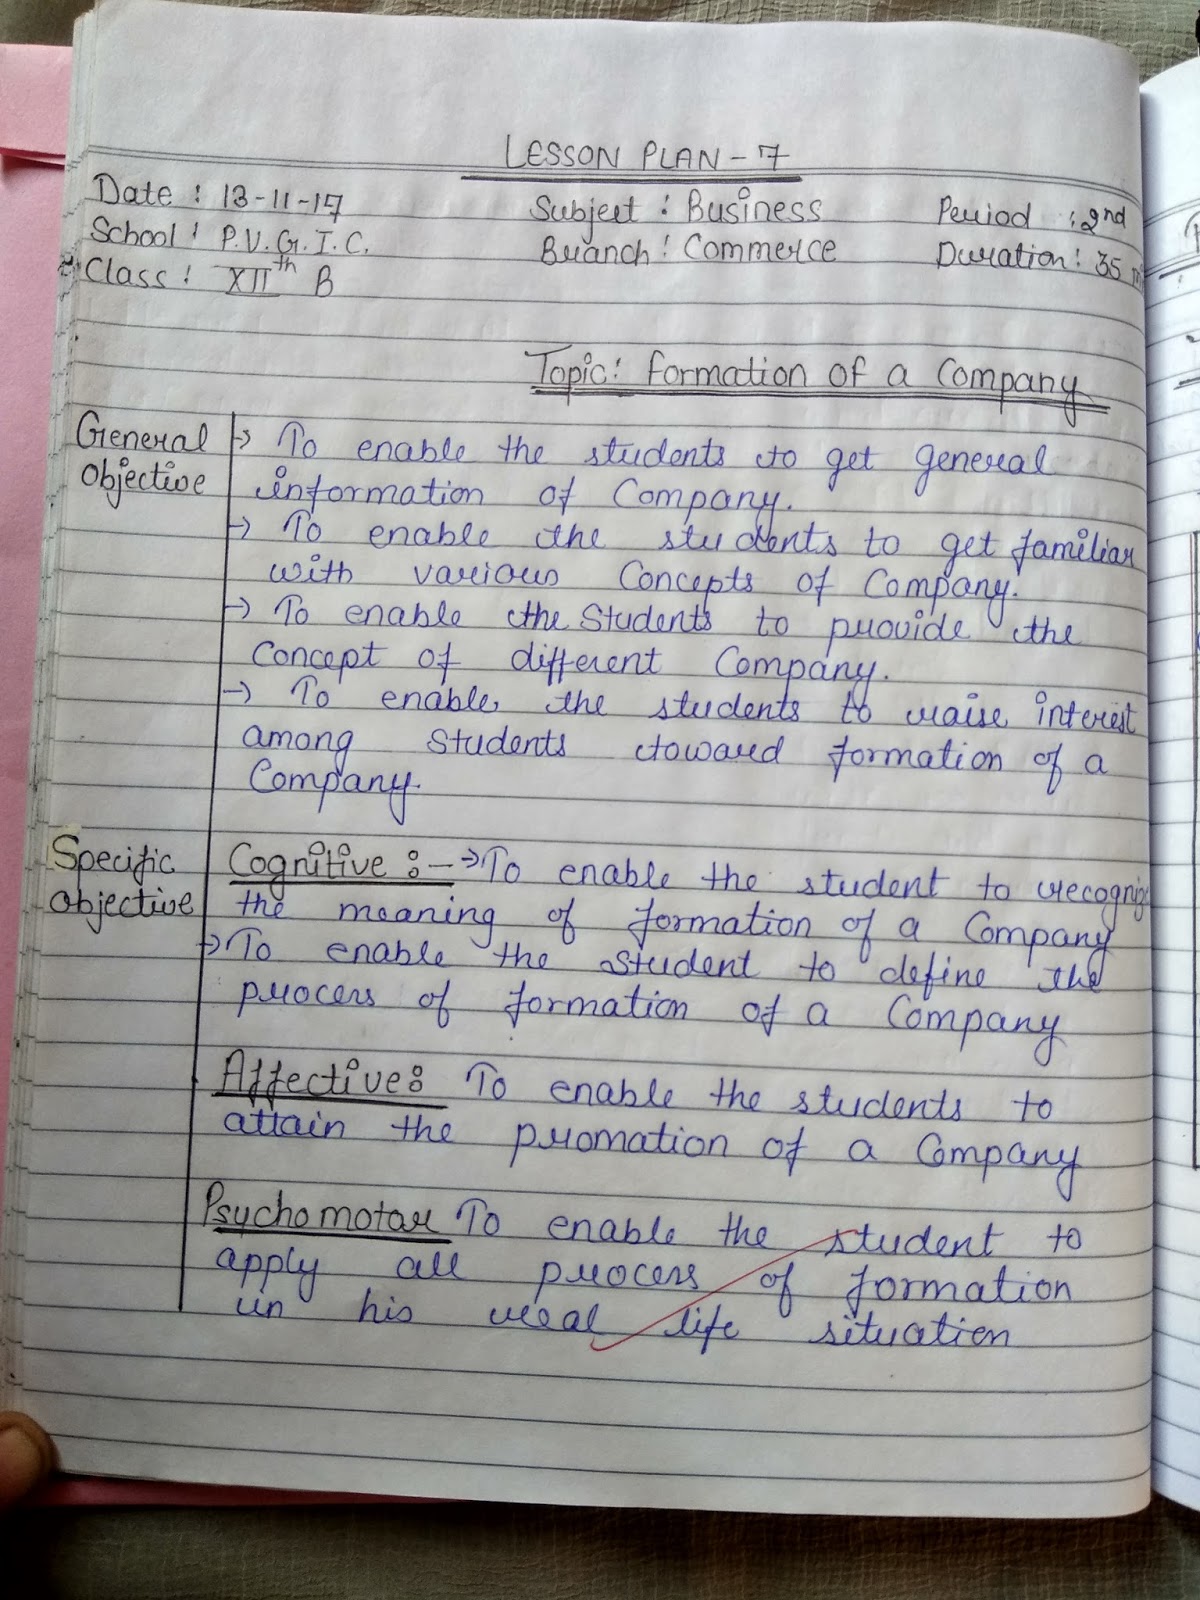 LESSON PLAN - 7
Date : 13-11-17 Subject : Business Period : 2nd
School : P.V.G.I.C. Branch : Commerce Duration : 35
Class : XIIth B
Topic : Formation of a Company
General Objective
→ To enable the students to get general
information of Company.
→ To enable the students to get familiar
with various Concepts of Company.
→ To enable the Students to provide the
Concept of different Company.
→ To enable the students to raise interest
among students toward formation of a
Company.
Specific Objective
Cognitive :- → To enable the student to recognize
the meaning of formation of a Company
→ To enable the student to define the
process of formation of a Company
Affective : To enable the students to
attain the promation of a Company
Psychomotar To enable the student to
apply all process of formation
in his real life situation